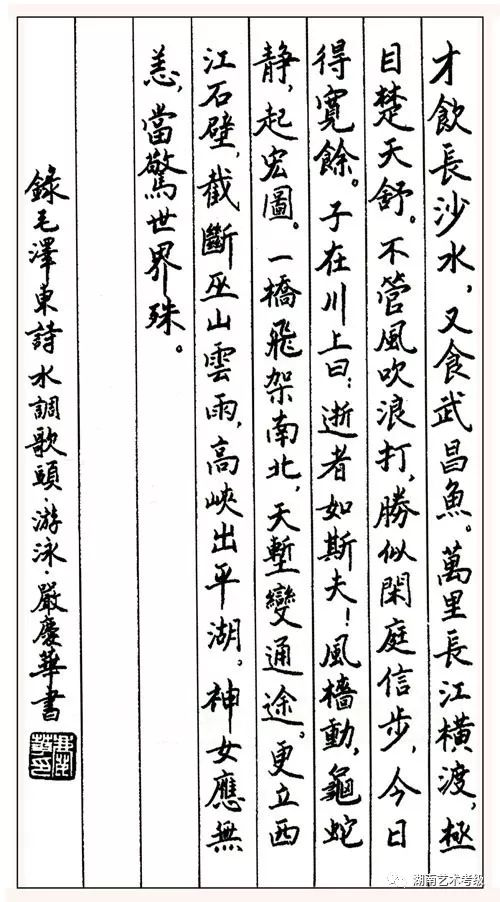 才飲長沙水，又食武昌魚。萬里長江橫渡，極
目楚天舒。不管風吹浪打，勝似閑庭信步，今日
得寬餘。子在川上曰：逝者如斯夫！風檣動，龜蛇
静，起宏圖。一橋飛架南北，天塹變通途。更立西
江石壁，截斷巫山雲雨，高峽出平湖。神女應無
恙，當驚世界殊。
錄毛澤東詩水調歌頭·游泳·嚴慶華書
湖南艺术考级